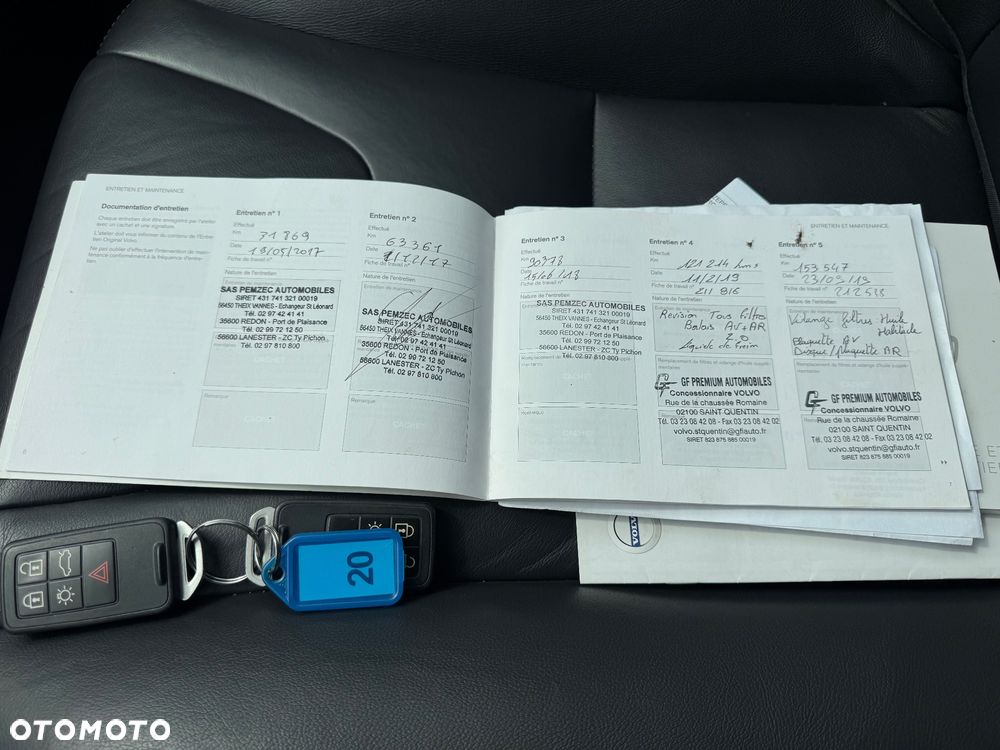 ENTRETIEN ET MAINTENANCE
Documentation d'entretien
Chaque entretien doit être enregistré par l'atelier
avec un cachet et une signature.
L'atelier doit vous informer du contenu de l'Entre-
tien Original Volvo.
Ne pas oublier d'effectuer l'intervention de main-
tenance conformément à la fréquence d'entre-
tien.
Entretien n° 1
Effectué
Km 31 869
Date 18/05/2017
Fiche de travail n°
Nature de l'entretien
SAS PEMZEC AUTOMOBILES
SIRET 431 741 321 00019
56450 THEIX VANNES - Echangeur St Léonard
Tél. 02 97 42 41 41
35600 REDON - Port de Plaisance
Tél. 02 99 72 12 50
56600 LANESTER - ZC Ty Pichon
Tél. 02 97 810 800
Remarque
Entretien n° 2
Effectué
Km 63361
Date
Fiche de travail n°
Nature de l'entretien
SAS PEMZEC AUTOMOBILES
SIRET 431 741 321 00019
56450 THEIX VANNES - Echangeur St Léonard
Tél. 02 97 42 41 41
35600 REDON - Port de Plaisance
Tél. 02 99 72 12 50
56600 LANESTER - ZC Ty Pichon
Tél. 02 97 810 800
Remarque
CACHET
Entretien n° 3
Effectué
Km 90378
Date 15/06/18
Fiche de travail n°
Nature de l'entretien
SAS PEMZEC AUTOMOBILES
SIRET 431 741 321 00019
56450 THEIX VANNES - Echangeur St Léonard
Tél. 02 97 42 41 41
35600 REDON - Port de Plaisance
Tél. 02 99 72 12 50
56600 LANESTER - ZC Ty Pichon
Tél. 02 97 810 800
CACHET
Entretien n° 4
Effectué
Km 121 214 kms
Date 11/2/19
Fiche de travail n° 211 816
Nature de l'entretien
Révision Tous filtres
Balais AV+AR
Liquide de Frein
Remplacement de filtres et vidange d'huile supplé-
mentaires
GF PREMIUM AUTOMOBILES
Concessionnaire VOLVO
Rue de la chaussée Romaine
02100 SAINT QUENTIN
Tél. 03 23 08 42 08 - Fax 03 23 08 42 02
volvo.stquentin@gfiauto.fr
SIRET 823 875 885 00019
ENTRETIEN ET MAINTENANCE
Entretien n° 5
Effectué
Km 153 547
Date 23/09/19
Fiche de travail n° 212538
Nature de l'entretien
Vidange filtres Huile
Habitacle
Plaquette AV
Disque/plaquette AR
Remplacement de filtres et vidange d'huile supplé-
mentaires
CACHET
GF PREMIUM AUTOMOBILES
Concessionnaire VOLVO
Rue de la chaussée Romaine
02100 SAINT QUENTIN
Tél. 03 23 08 42 08 - Fax 03 23 08 42 02
volvo.stquentin@gfiauto.fr
SIRET 823 875 885 00019
7
VOLVO
20
OTOMOTO